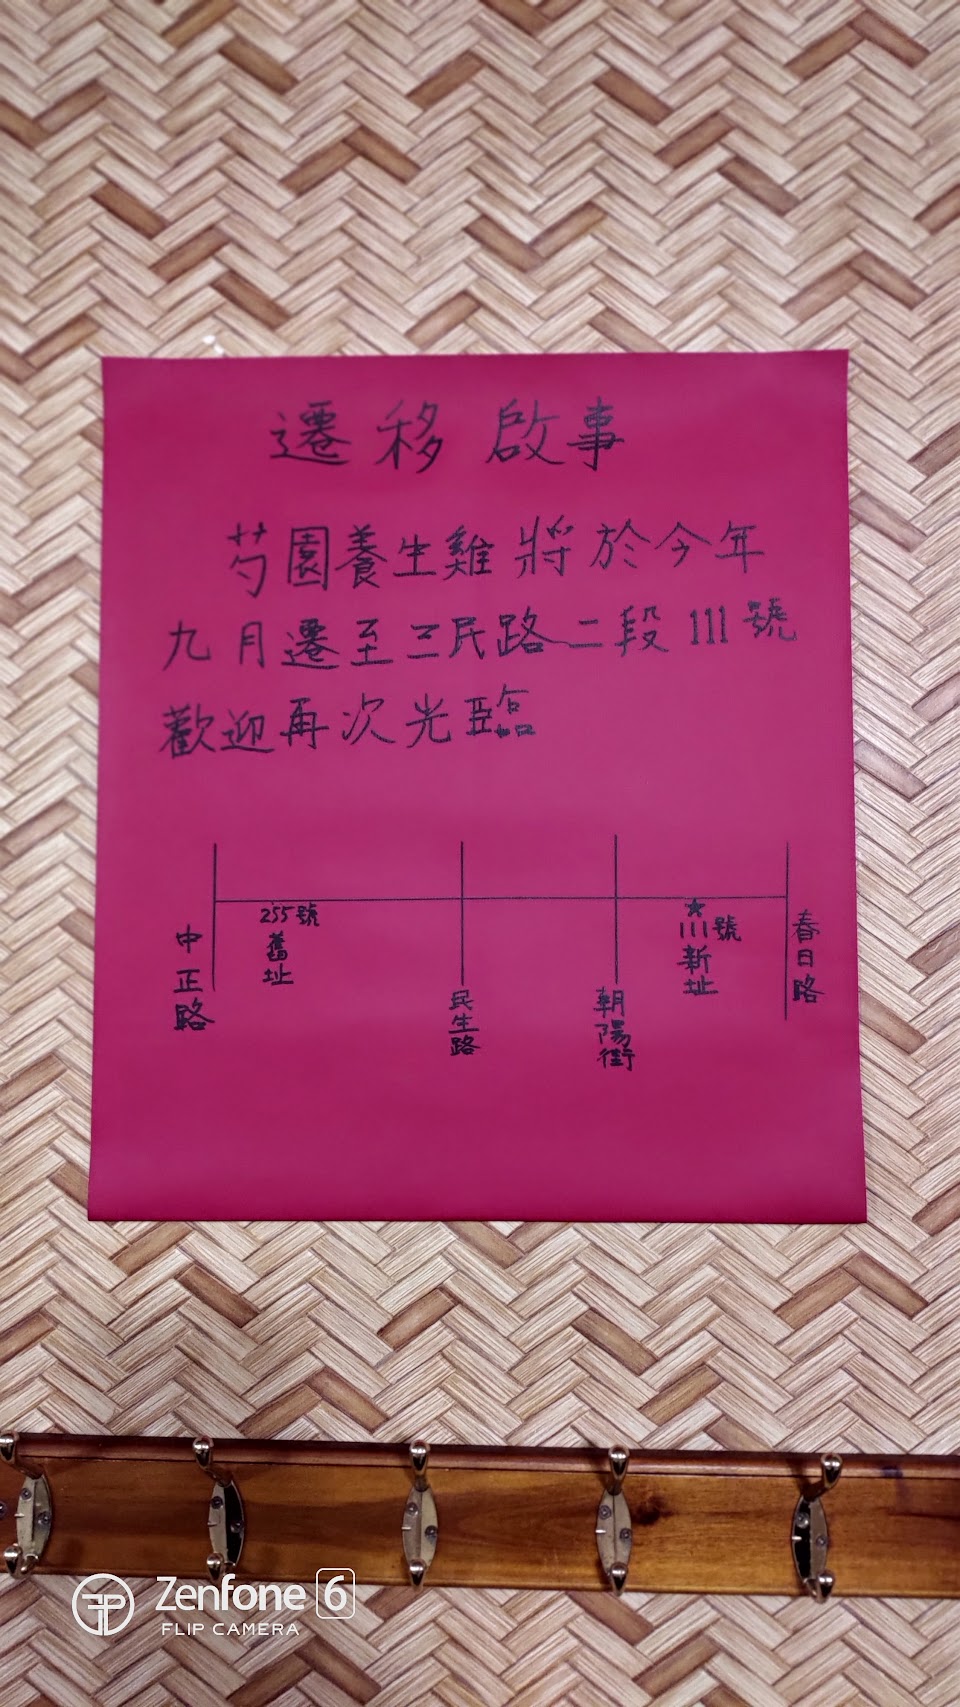 遷移啟事
芍園養生雞將於今年
九月遷至三民路二段111號
歡迎再次光臨
255號
舊址
中正路
民生路
朝陽街
★
111號
新址
春日路
Zenfone 6
FLIP CAMERA